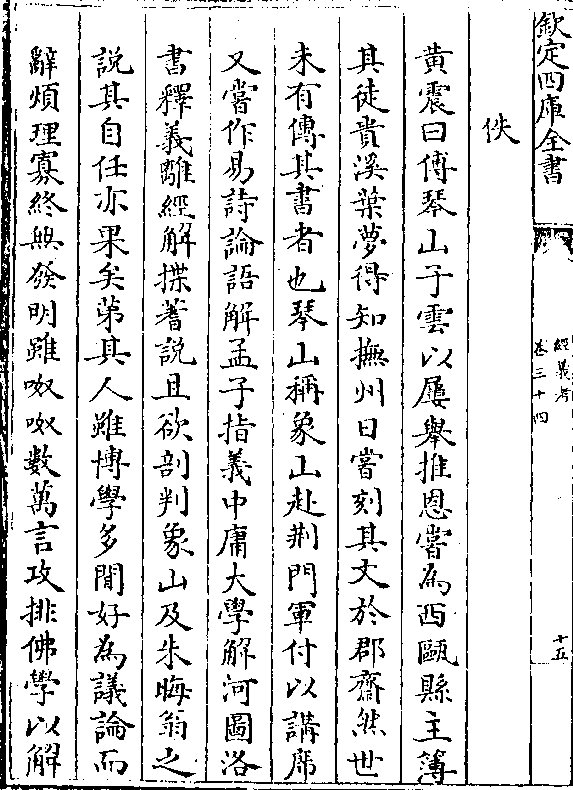 欽定四庫全書
經義考
卷三十四
十五
佚
黃震曰傅琴山子雲以屢舉推恩嘗為西甌縣主簿
其徒貴溪葉夢得知撫州日嘗刻其文於郡齋然世
未有傳其書者也琴山稱象山赴荆門軍付以講席
又嘗作易詩論語解孟子指義中庸大學解河圖洛
書釋義離經解揲蓍說且欲剖判象山及朱晦翁之
說其自任亦果矣苐其人雖博學多聞好為議論而
辭煩理寡終無發明雖呶呶數萬言攻排佛學以解